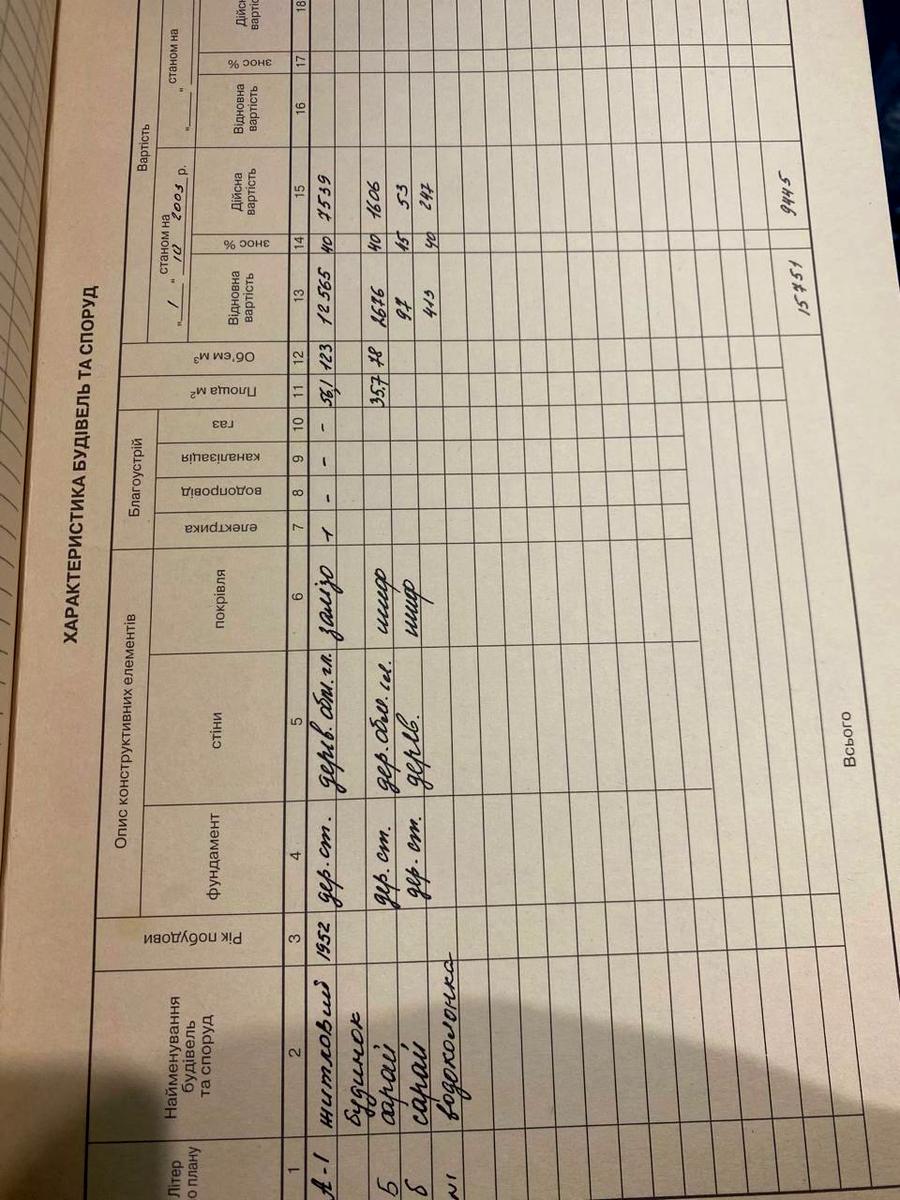 ХАРАКТЕРИСТИКА БУДІВЕЛЬ ТА СПОРУД
Літер
о плану
Найменування
будівель
та споруд
Рік побудови
Опис конструктивних елементів
фундамент
стіни
покрівля
Благоустрій
електрика
водопровід
каналізація
газ
Площа м²
Об'єм м³
Вартість
"1" станом на
10 2003 р.
Відновна
вартість
знос %
Дійсна
вартість
" " станом на
Відновна
вартість
знос %
Дійсн
вартіс
1 2 3 4 5 6 7 8 9 10 11 12 13 14 15 16 17 18
А-I житловий 1952 дер.ст. дерев. обм. гл. залізо + - - - 56,1 123 12565 40 7539
будинок
Б сарай дер. ст. дер. обм. гл. шиф 35.7 78 2676 40 1606
б сарай дер. ст. дерев. шиф 97 45 53
N1 водоколонка 413 40 247
Всього 15751 9445